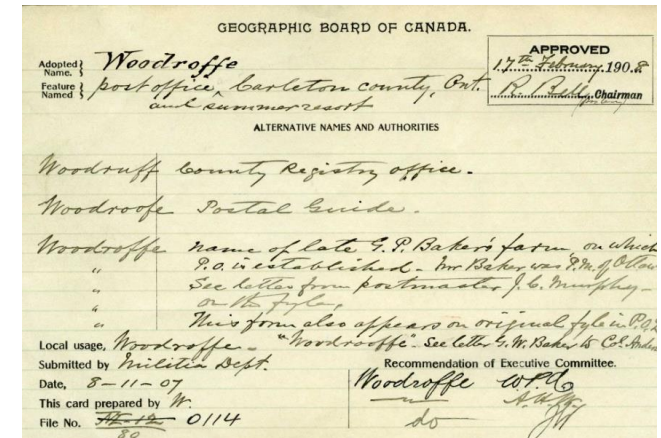 GEOGRAPHIC BOARD OF CANADA.
Adopted Name. } Woodroffe
Feature Named } post office, Carleton county, Ont.
and summer resort
APPROVED
17th February 1908
R. Bell Chairman
ALTERNATIVE NAMES AND AUTHORITIES
Woodruff County Registry office.
Woodroofe Postal Guide.
Woodroffe name of late G.P. Baker's farm on which
" P.O. is established - Mr Baker was P.M. of Ottaw
" See letter from postmaster J.C. Murphy -
" on th fyle,
" This form also appears on original fyle in P.O.
Local usage, Woodroffe - "Woodrooffe" - See letter G.W. Baker to Col. Ander
Submitted by Militia Dept.
Date, 8-11-07
This card prepared by W.
File No. 0114
80
Recommendation of Executive Committee.
Woodroffe
do